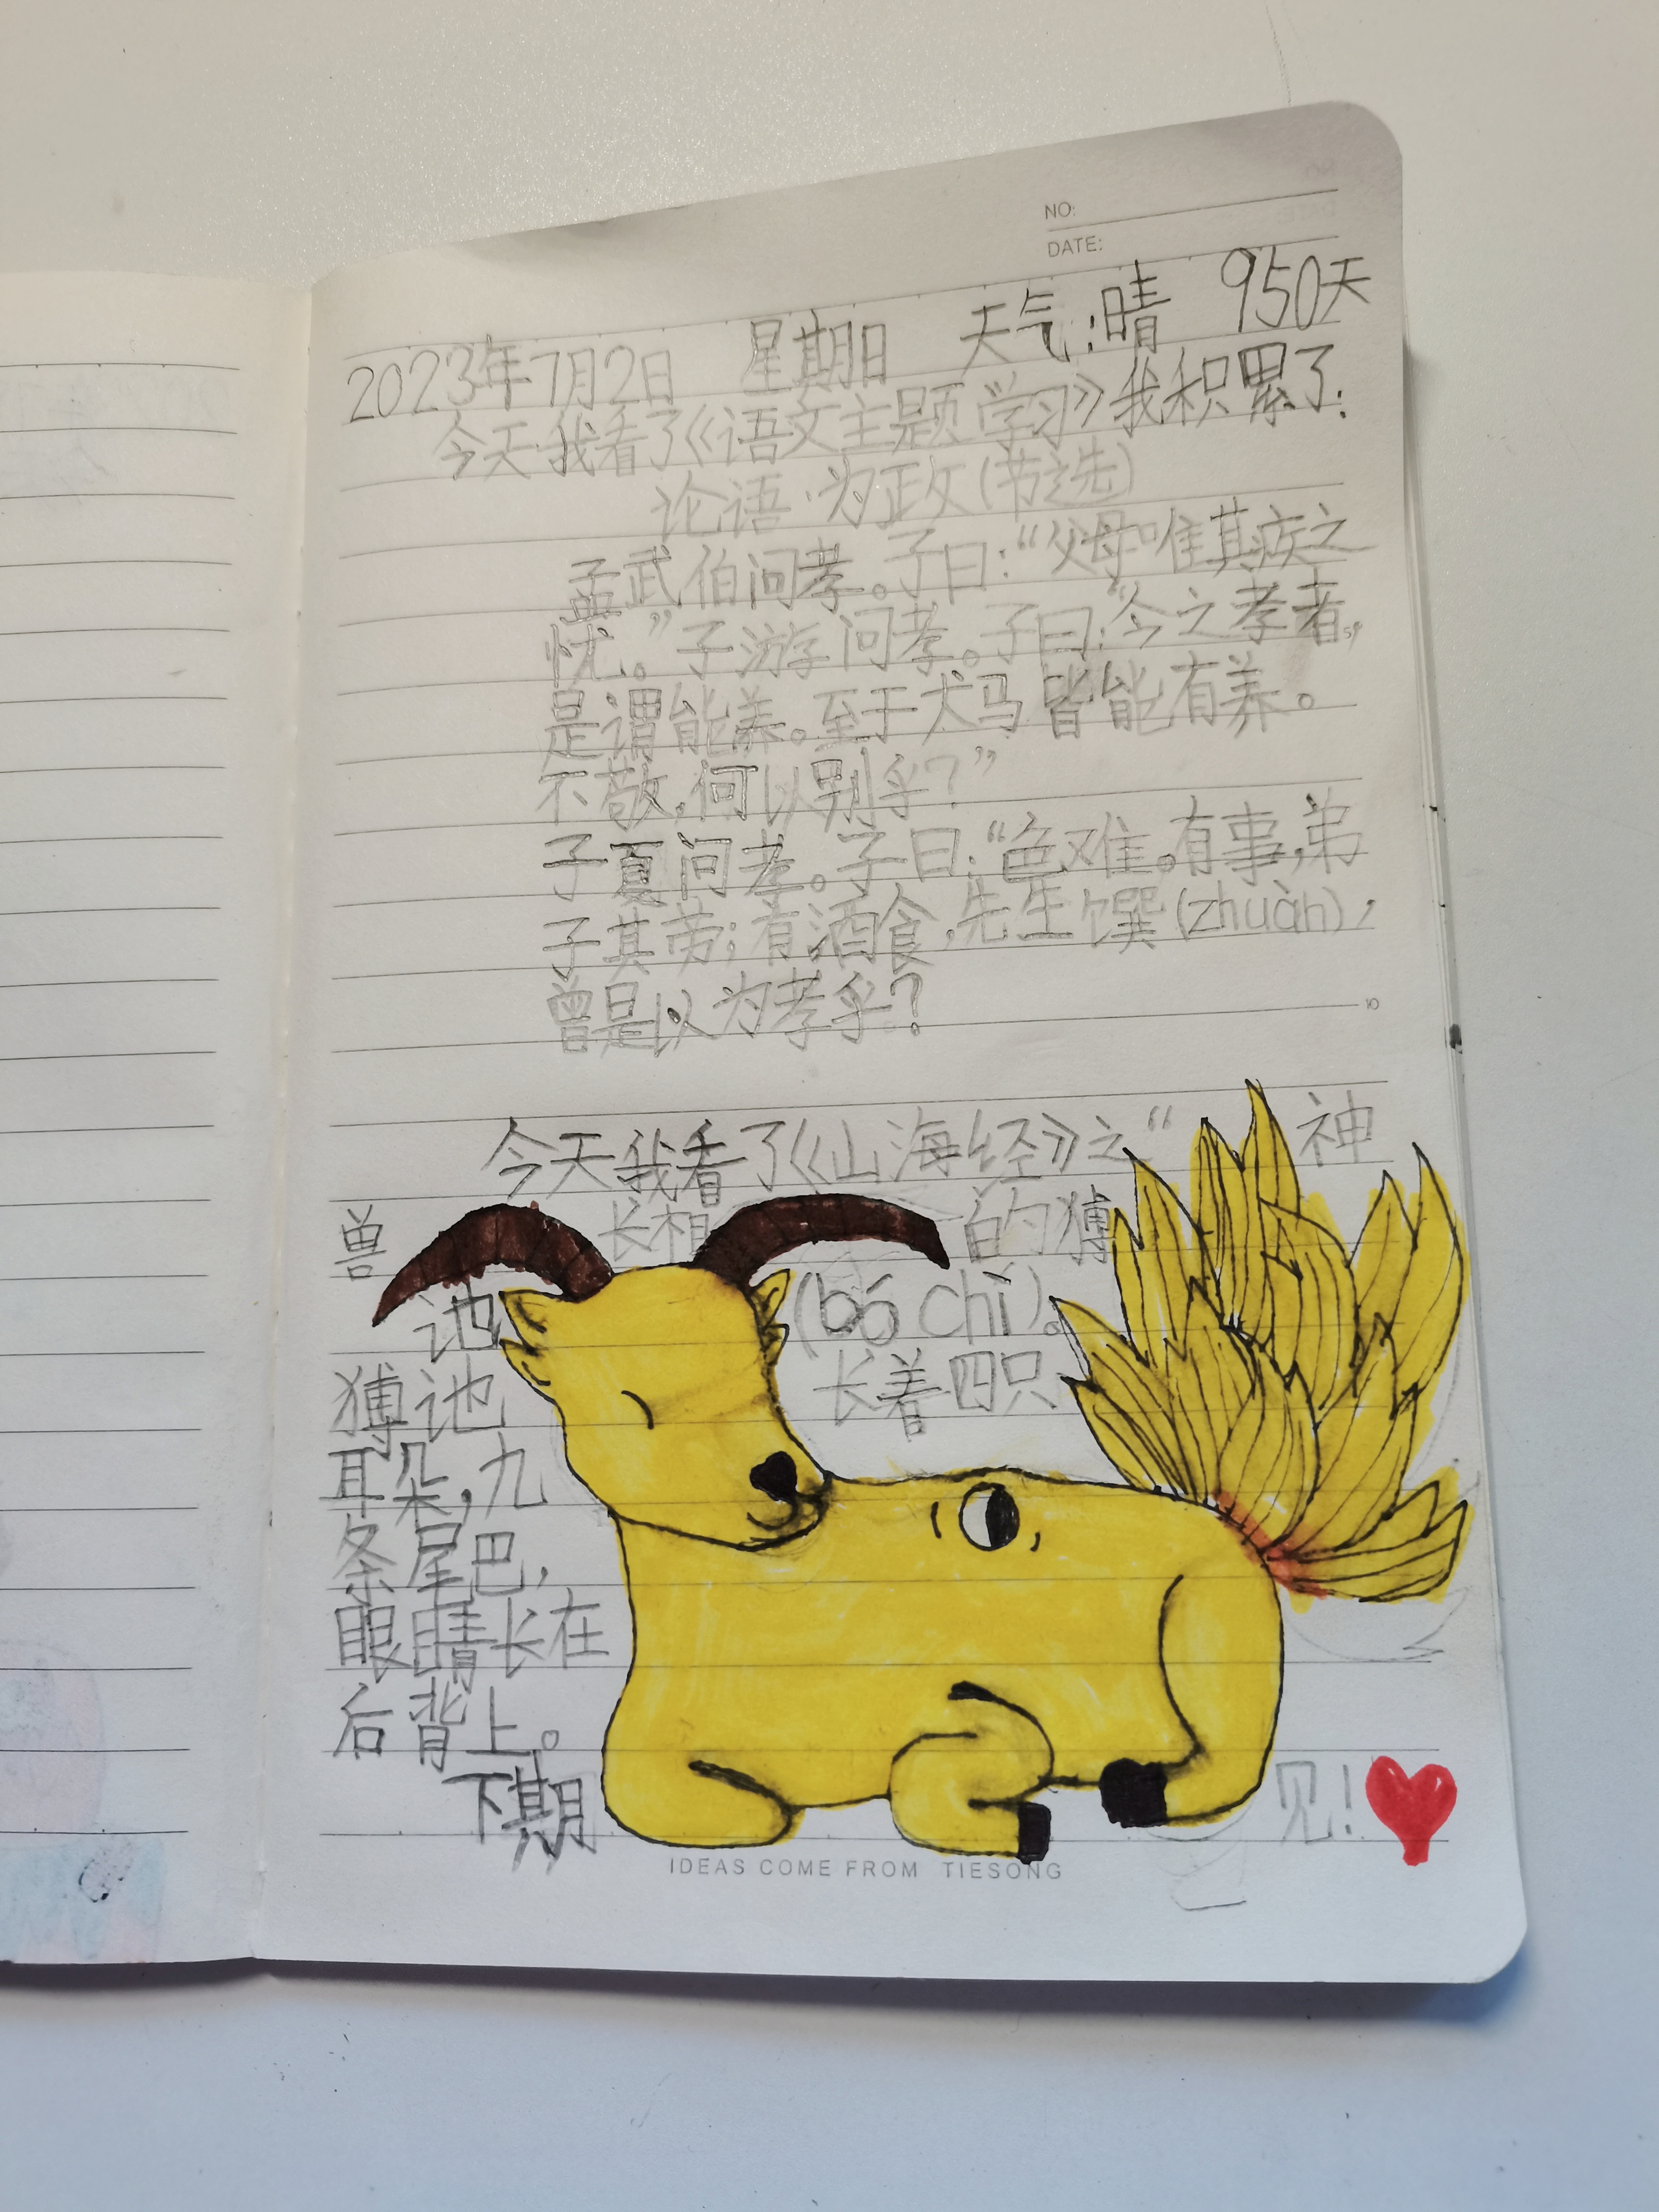 NO:
DATE:
2023年7月2日 星期日 天气:晴 950天
今天我看了《语文主题学习》我积累了:
论语·为政(节选)
孟武伯问孝。子曰:“父母唯其疾之
忧。”子游问孝。子曰:“今之孝者,
是谓能养。至于犬马皆能有养。
不敬,何以别乎?”
子夏问孝。子曰:“色难。有事,弟
子其劳;有酒食,先生馔(zhuàn),
曾是以为孝乎?
10
今天我看了《山海经》之“ 神
兽 长相 的猼
訑 (bó chǐ)。
猼訑 长着四只
耳朵,九
条尾巴,
眼睛长在
后背上。
下期 见!
IDEAS COME FROM TIESONG